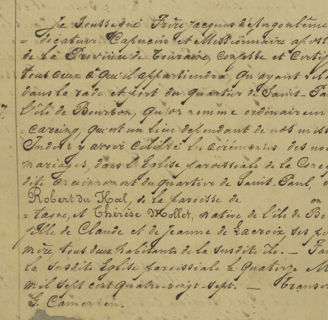 Je Soussigné Frère Jacques d'Angoulême
Capucin et Missionnaire apost
de la Province de Touraine, confesse et Certif
tous ceux à qui il appartiendra, qu'ayant
dans la rade et Port du quartier de Saint-Pa
l'île de Bourbon, qu'on nomme ordinairem
qui est un lieu dépendant de nos miss
Indes y avoir célébré les Cérémonies des
mariages, dans l'Église paroissiale de la Conc
dite du quartier de Saint-Paul,
Robert du Hoel, de la paroisse de
et Thérèse Mollet, native de l'île de Bo
fille de Claude et de Jeanne de Lacroix ses
mère tous deux habitants de la susdite île. — Fa
la susdite Église paroissiale le Quatorze M
mil sept cent quatre-vingt-sept. —